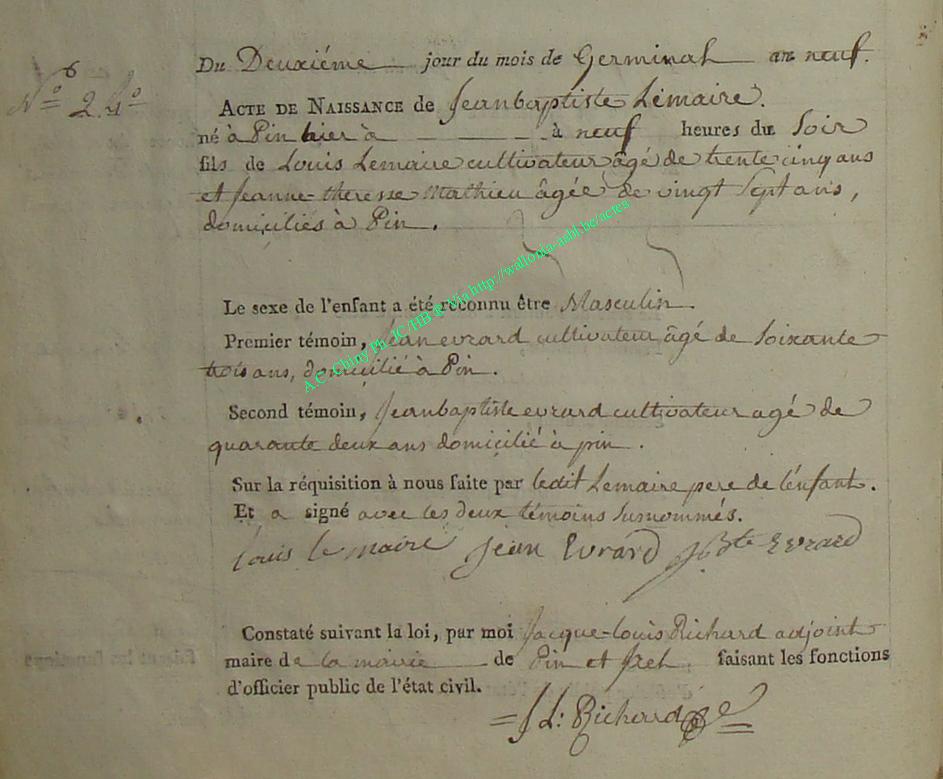 Du Deuxiéme jour du mois de Germinal an neuf.
N° 2.
ACTE DE NAISSANCE de Jeanbaptiste Lemaire.
né à Pin hier à à neuf heures du Soir
fils de Louis Lemaire cultivateur âgé de trente cinq ans
et Jeanne-therese Mathieu âgée de vingt Sept ans,
domiciliés à Pin.
Le sexe de l'enfant a été reconnu être Masculin
Premier témoin, Jean evrard cultivateur âgé de Soixante
trois ans, domicilié à Pin.
Second témoin, Jeanbaptiste evrard cultivateur agé de
quarante deux ans domicilié à pin.
Sur la réquisition à nous faite par ledit Lemaire pere de l'enfant.
Et a signé avec les deux témoins surnommés.
Louis le maire Jean Evrard JBte Evrard
Constaté suivant la loi, par moi Jacque-louis Richard adjoint
maire de la mairie de Pin et Izel, faisant les fonctions
d'officier public de l'état civil.
J L: Richard
A.C. Chiny Ph JC/HB @ Via http://wallonia-asbl.be/actes